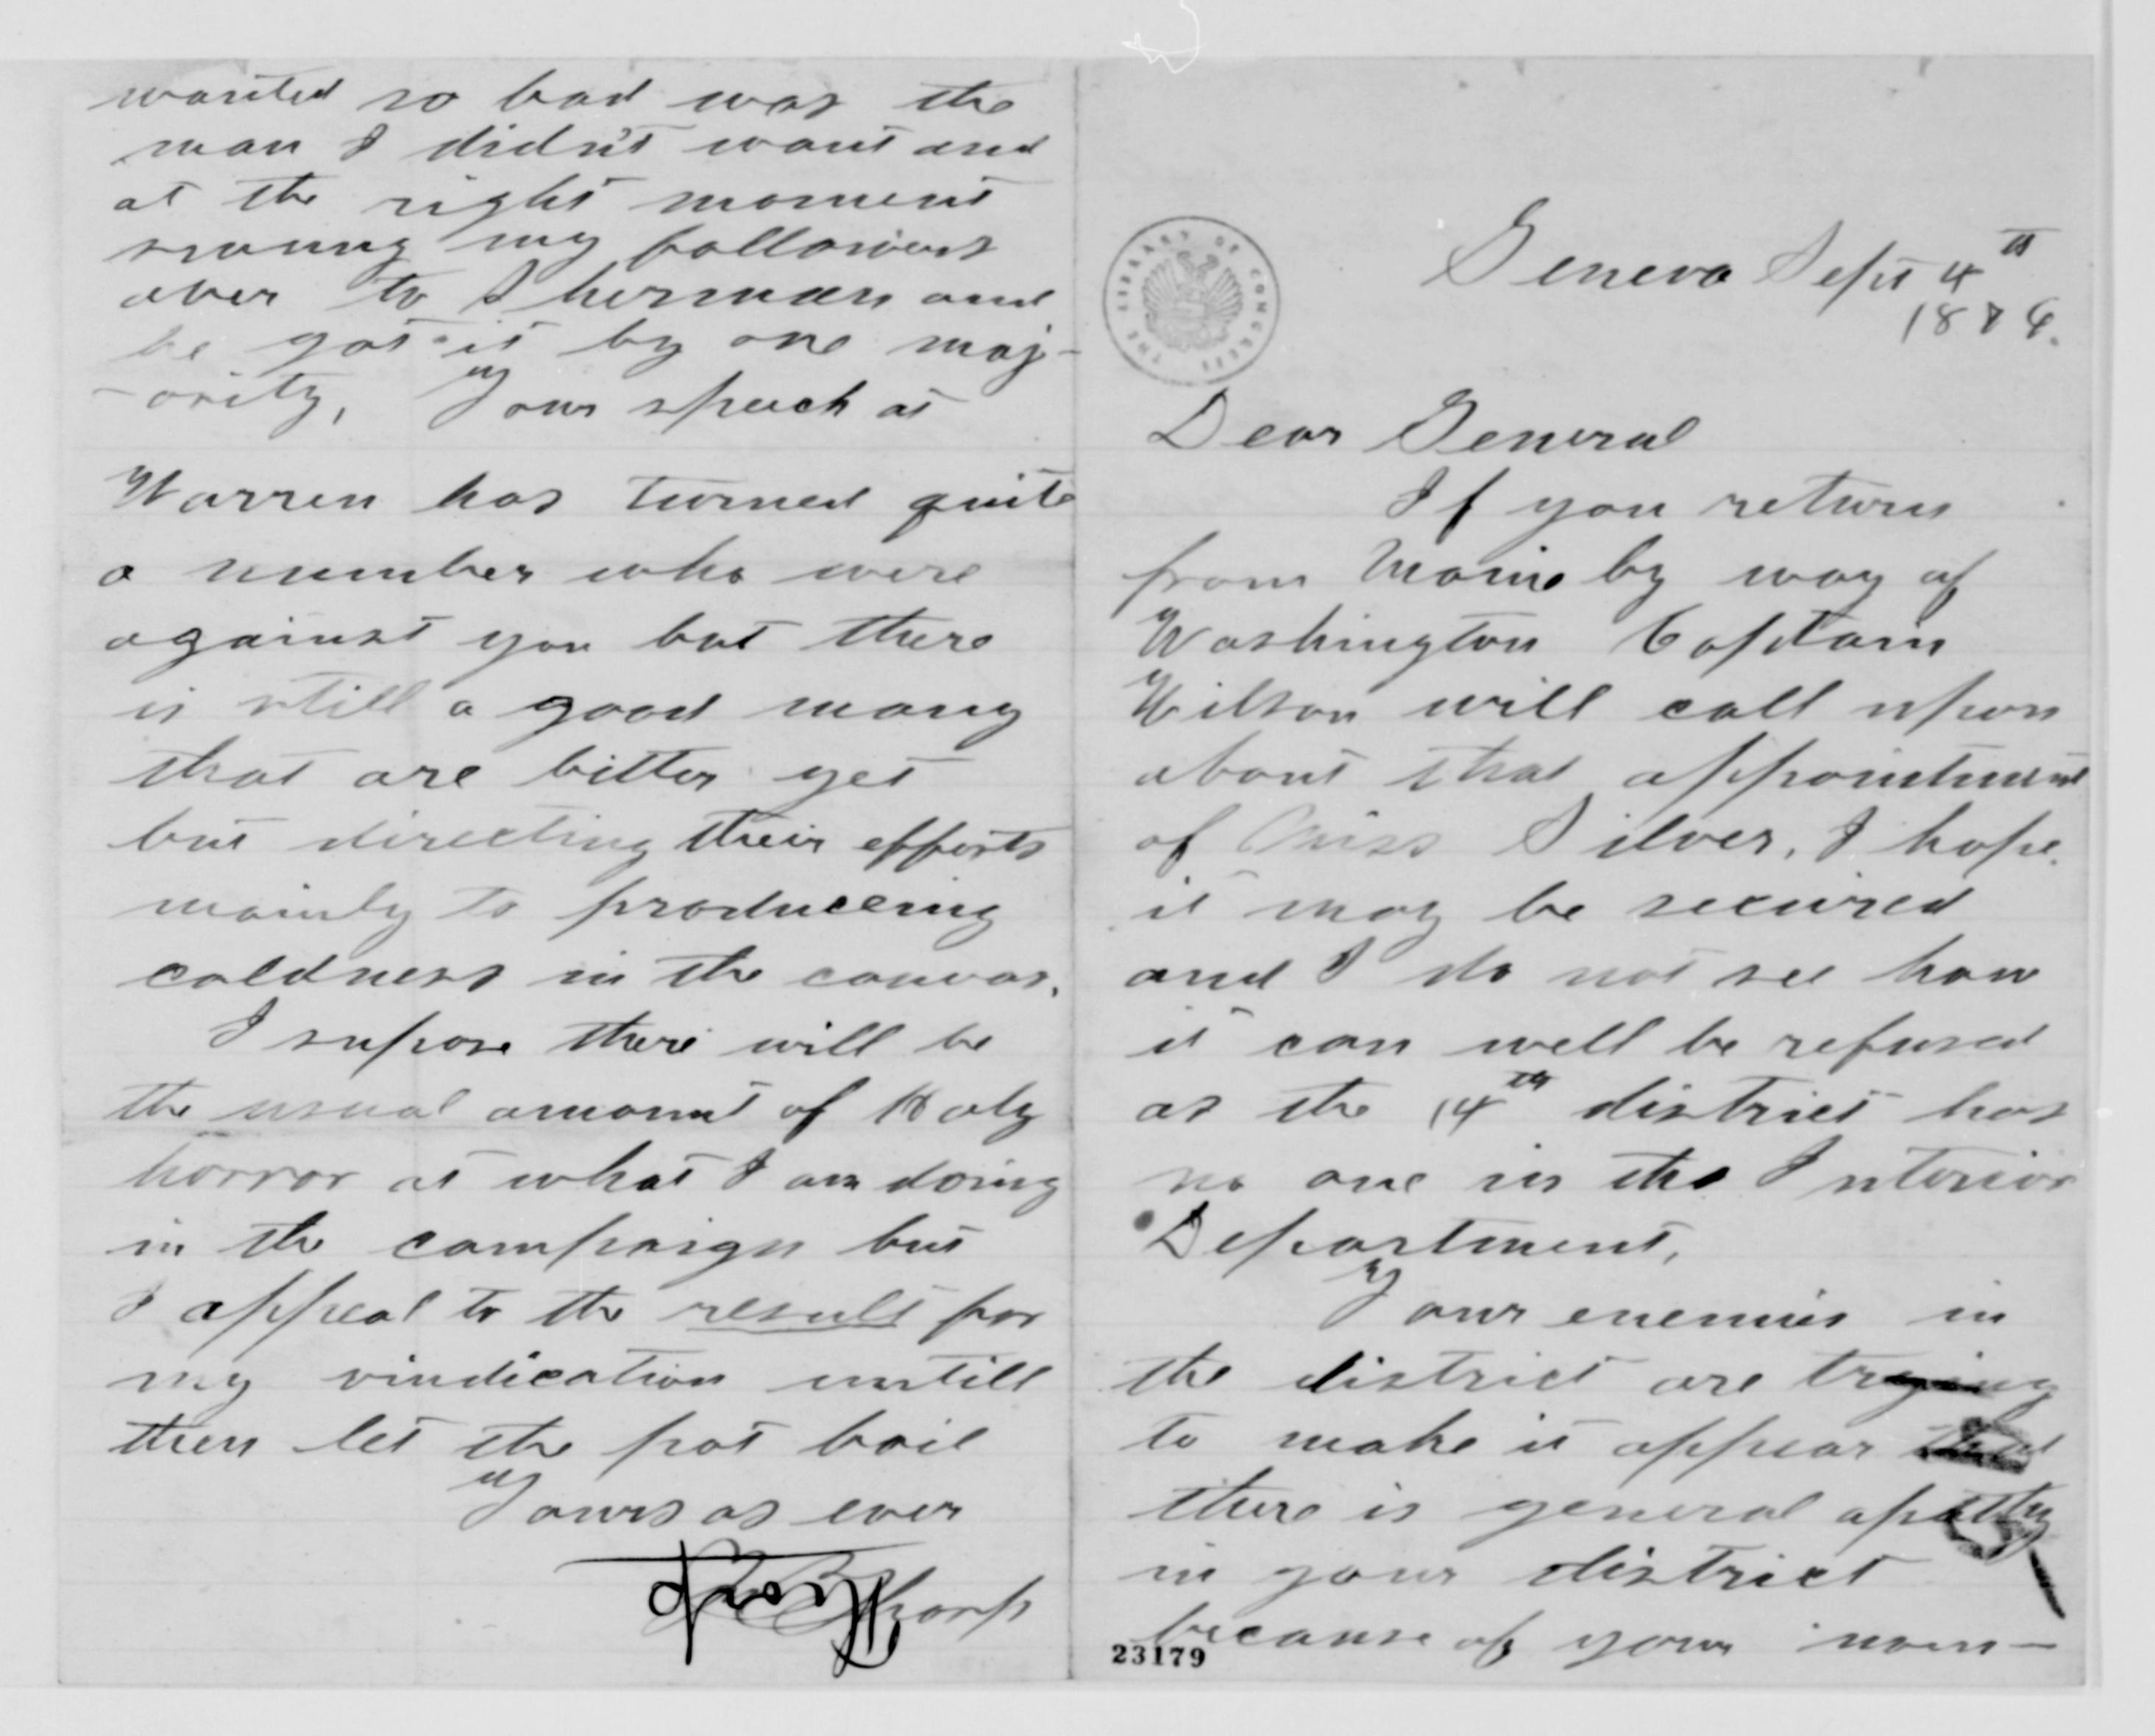 Geneva Sept 4th
1878.
Dear General
If you return
from Maine by way of
Washington Captain
Wilson will call upon
about that appointment
of Miss Silver, I hope
it may be secured
and I do not see how
it can well be refused
as the 14th district has
no one in the Interior
Department,
Your enemies in
the district are trying
to make it appear that
there is general apathy
in your district
because of your nom-
23179
wanted so bad was the
man I didn't want and
at the right moment
swung my followers
over to Sherman and
he got it by one maj-
-ority, Your speech at
Warren has turned quite
a number who were
against you but there
is still a good many
that are bitter yet
but directing their efforts
mainly to produceing
coldness in the canvas.
I supose there will be
the usual amount of Holy
horror at what I am doing
in the campaign but
I appeal to the result for
my vindication untill
then let the pot boil
Yours as ever
THE LIBRARY OF CONGRESS